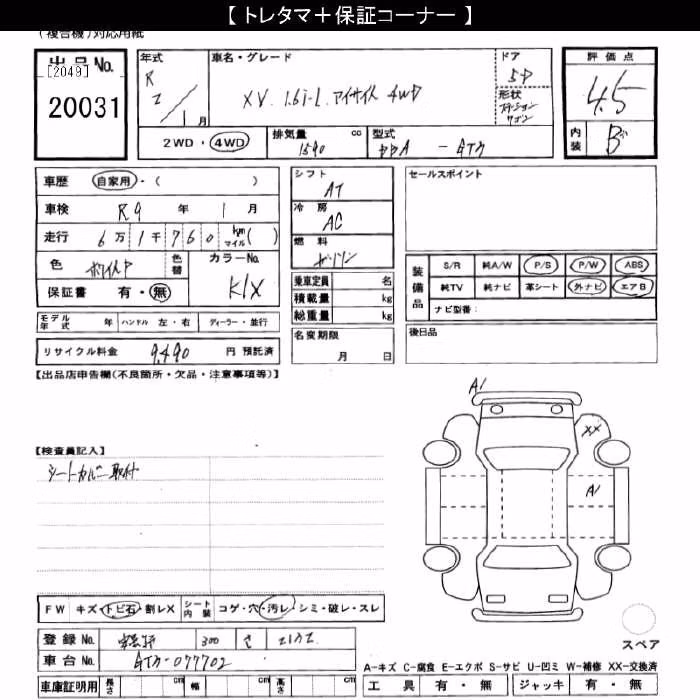 【 トレタマ＋保証コーナー 】
(複合機)対応用紙
出品No.
[2049]
20031
年式
R 2/1月
車名・グレード
XV 1.6i-L アイサイト 4WD
ドア
5D
形状
ステーションワゴン
評価点
4.5
内装
B
2WD・4WD
排気量 cc
1590
型式
DBA - GT3
車歴 自家用・( )
車検 R9 年 1 月
走行 6万1千760 km マイル( )
色 ホワイトP 色替
カラーNo. K1X
保証書 有・無
シフト
AT
冷房
AC
燃料
ガソリン
乗車定員 名
積載量 kg
総重量 kg
セールスポイント
装備品
S/R 純A/W P/S P/W ABS
純TV 純ナビ 革シート 外ナビ エアB
ナビ型番:
モデル年式 年 ハンドル 左・右 ディーラー・並行
リサイクル料金 9,490 円 預託済
名変期限
月 日
後日品
【出品店申告欄(不良箇所・欠品・注意事項等)】
A1
XX
A1
【検査員記入】
シートカバー取付
FW キズ・トビ石・割レX シート内装 コゲ・穴・汚レ・シミ・破レ・スレ
登録No. 300 さ
車台No. GT3-077702
車庫証明用 長さ cm 幅 cm 高さ cm
スペア
A-キズ C-腐食 E-エクボ S-サビ U-凹ミ W-補修 XX-交換済
工具 有・無 ジャッキ 有・無